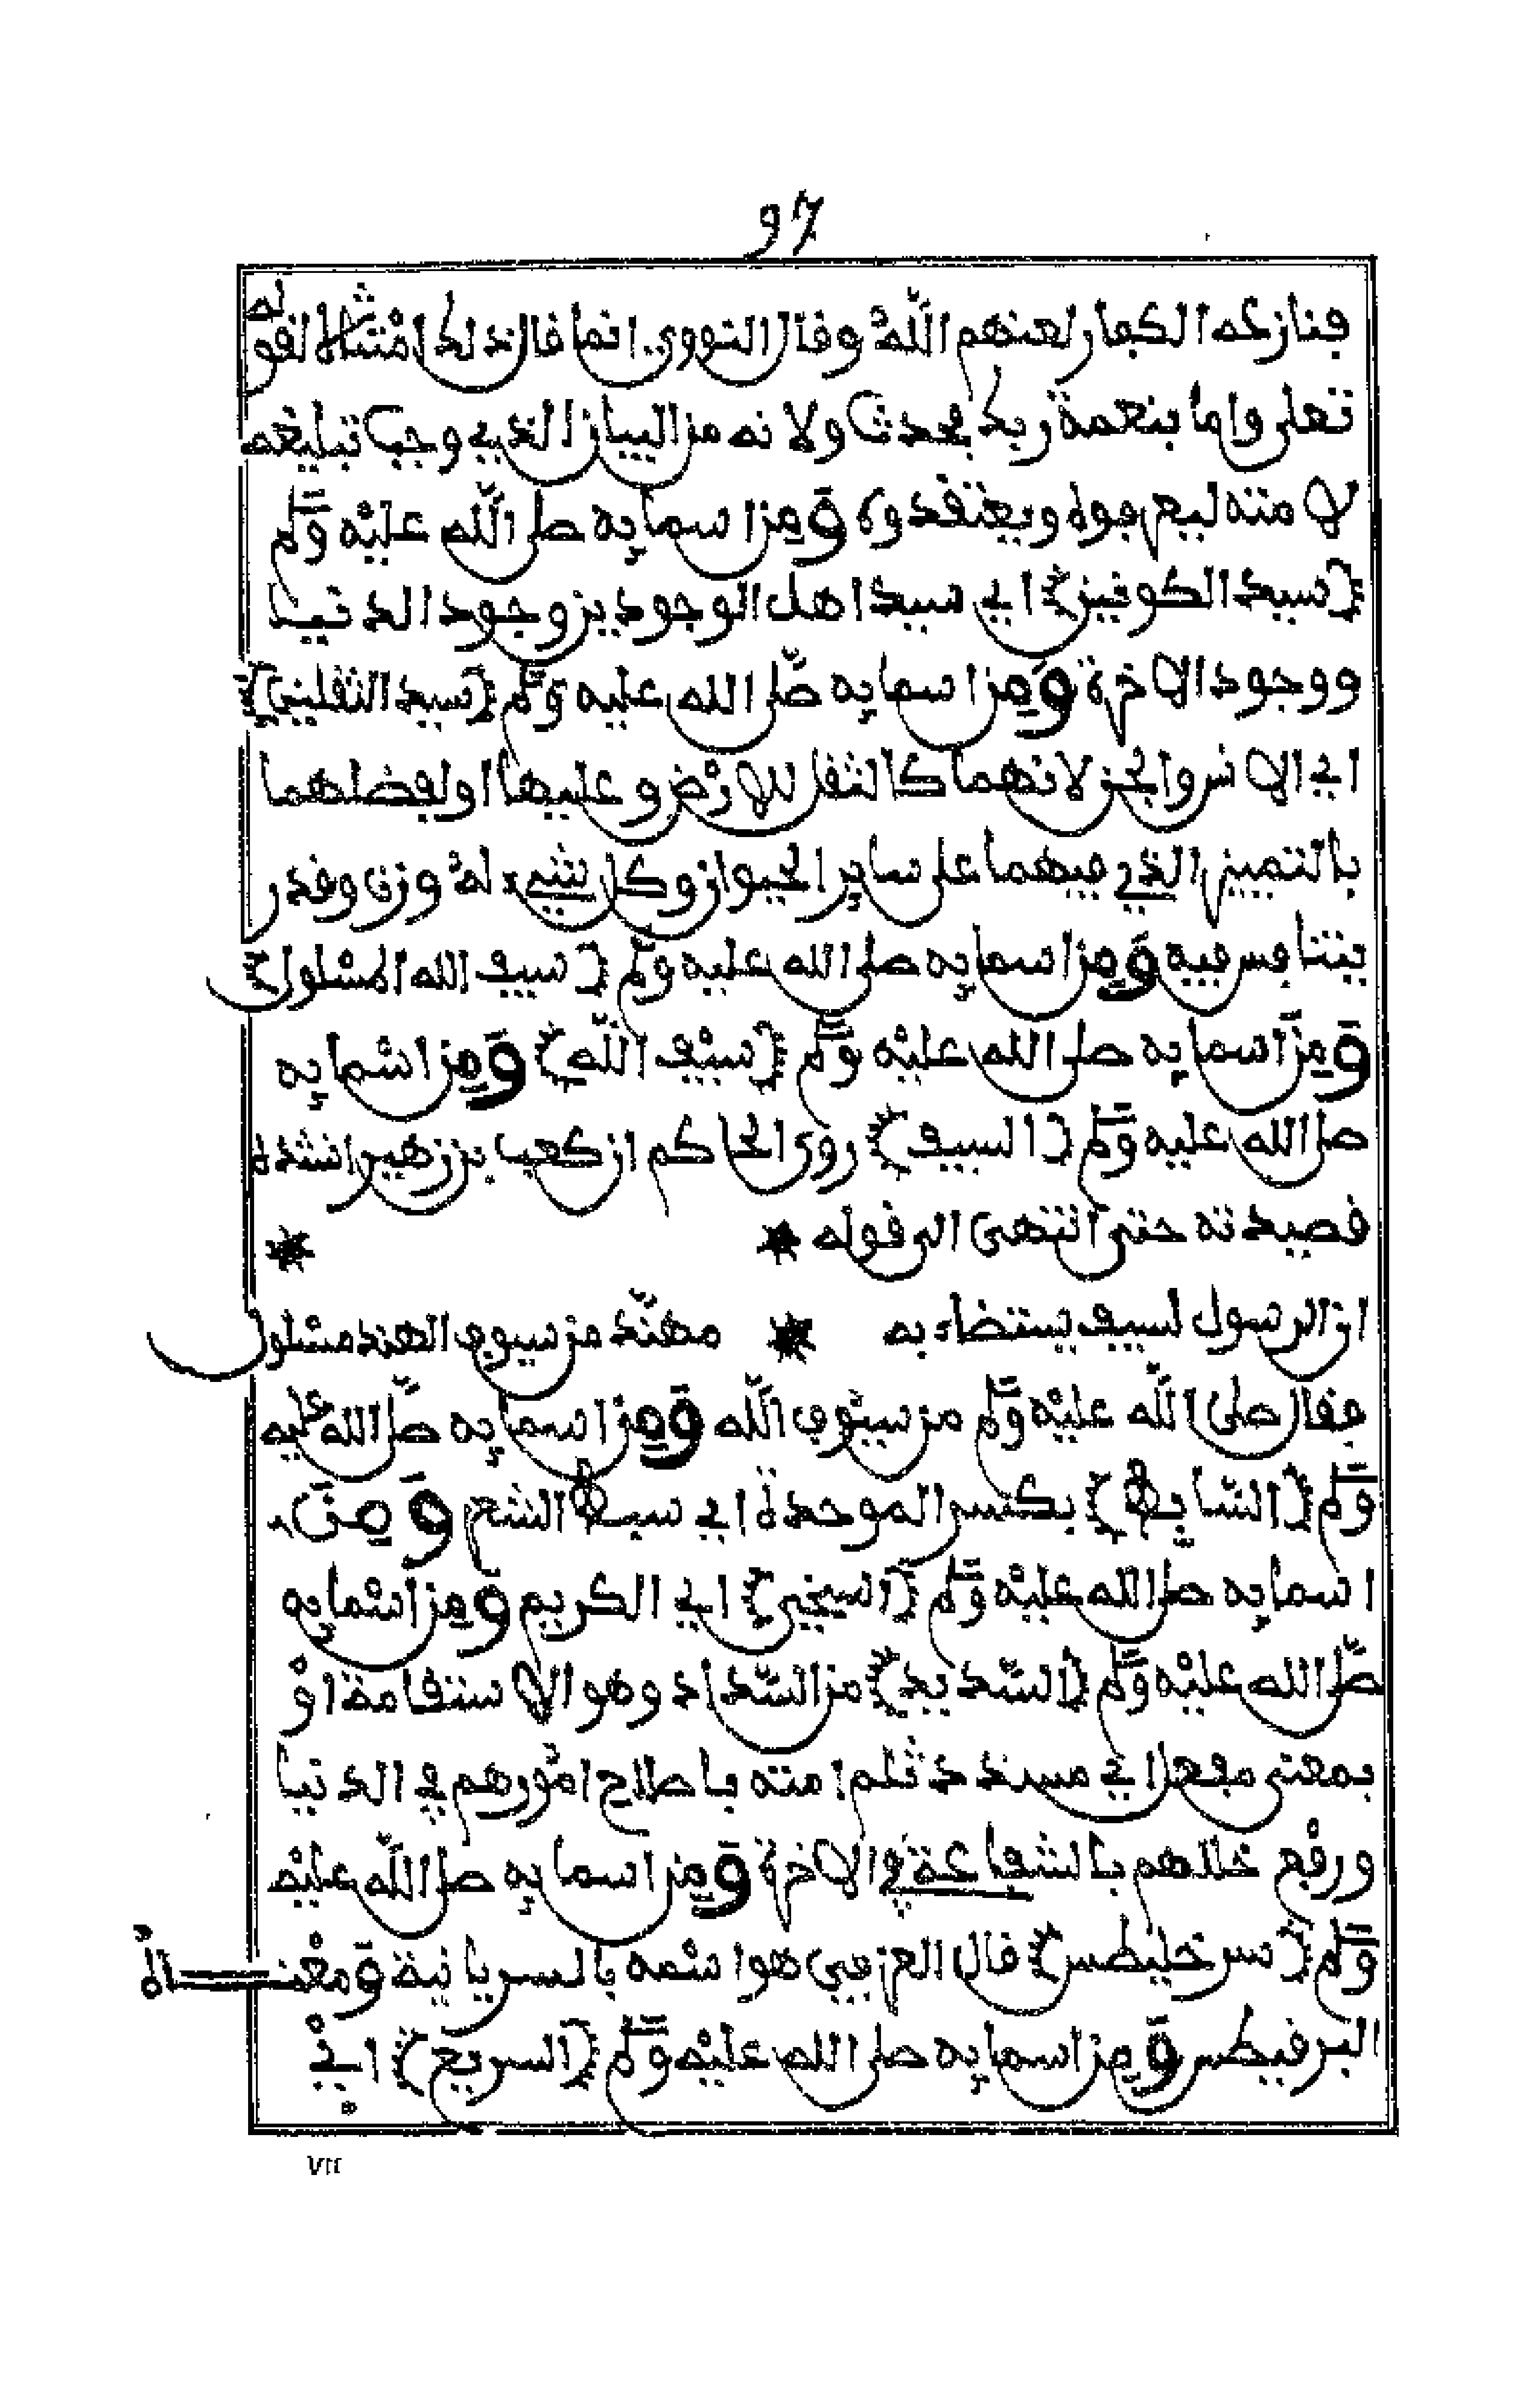 97
فنازعه الكفار لعنهم الله وقال النووي انما قال ذلك امتثالا لقوله
تعلى واما بنعمة ربك فحدث ولانه من البيان الذي وجب تبليغه
لامته ليعرفوه ويعتقدوه ومن اسمايه صلى الله عليه وسلم
(سيد الكونين) اي سيد اهل الوجودين وجود الدنيا
ووجود الاخرة ومن اسمايه صلى الله عليه وسلم (سيد الثقلين)
اي الانس والجن لانهما كالثقل للارض وعليها او لفضلهما
بالتمييز الذي فيهما على ساير الحيوان وكل شيء له وزن وقدر
يتنافس فيه ومن اسمايه صلى الله عليه وسلم (سيف الله المسلول)
ومن اسمايه صلى الله عليه وسلم (سيف الله) ومن اسمايه
صلى الله عليه وسلم (السيف) روى الحاكم ان كعب بن زهير انشده
قصيدته حتى انتهى الى قوله * *
ان الرسول لسيف يستضاء به * مهند من سيوف الهند مسلول
فقال صلى الله عليه وسلم من سيوف الله ومن اسمايه صلى الله عليه
وسلم (السابط) بكسر الموحدة اي سبط الشعر ومن
اسمايه صلى الله عليه وسلم (السخي) اي الكريم ومن اسمايه
صلى الله عليه وسلم (السديد) من السداد وهو الاستقامة او
بمعنى مفعل اي مسدد ثلم امته باصلاح امورهم في الدنيا
ورفع خللهم بالشفاعة في الاخرة ومن اسمايه صلى الله عليه
وسلم (سرخليطس) قال العزفي هو اسمه بالسريانية ومعناه
البرقيطس ومن اسمايه صلى الله عليه وسلم (السريع) اي